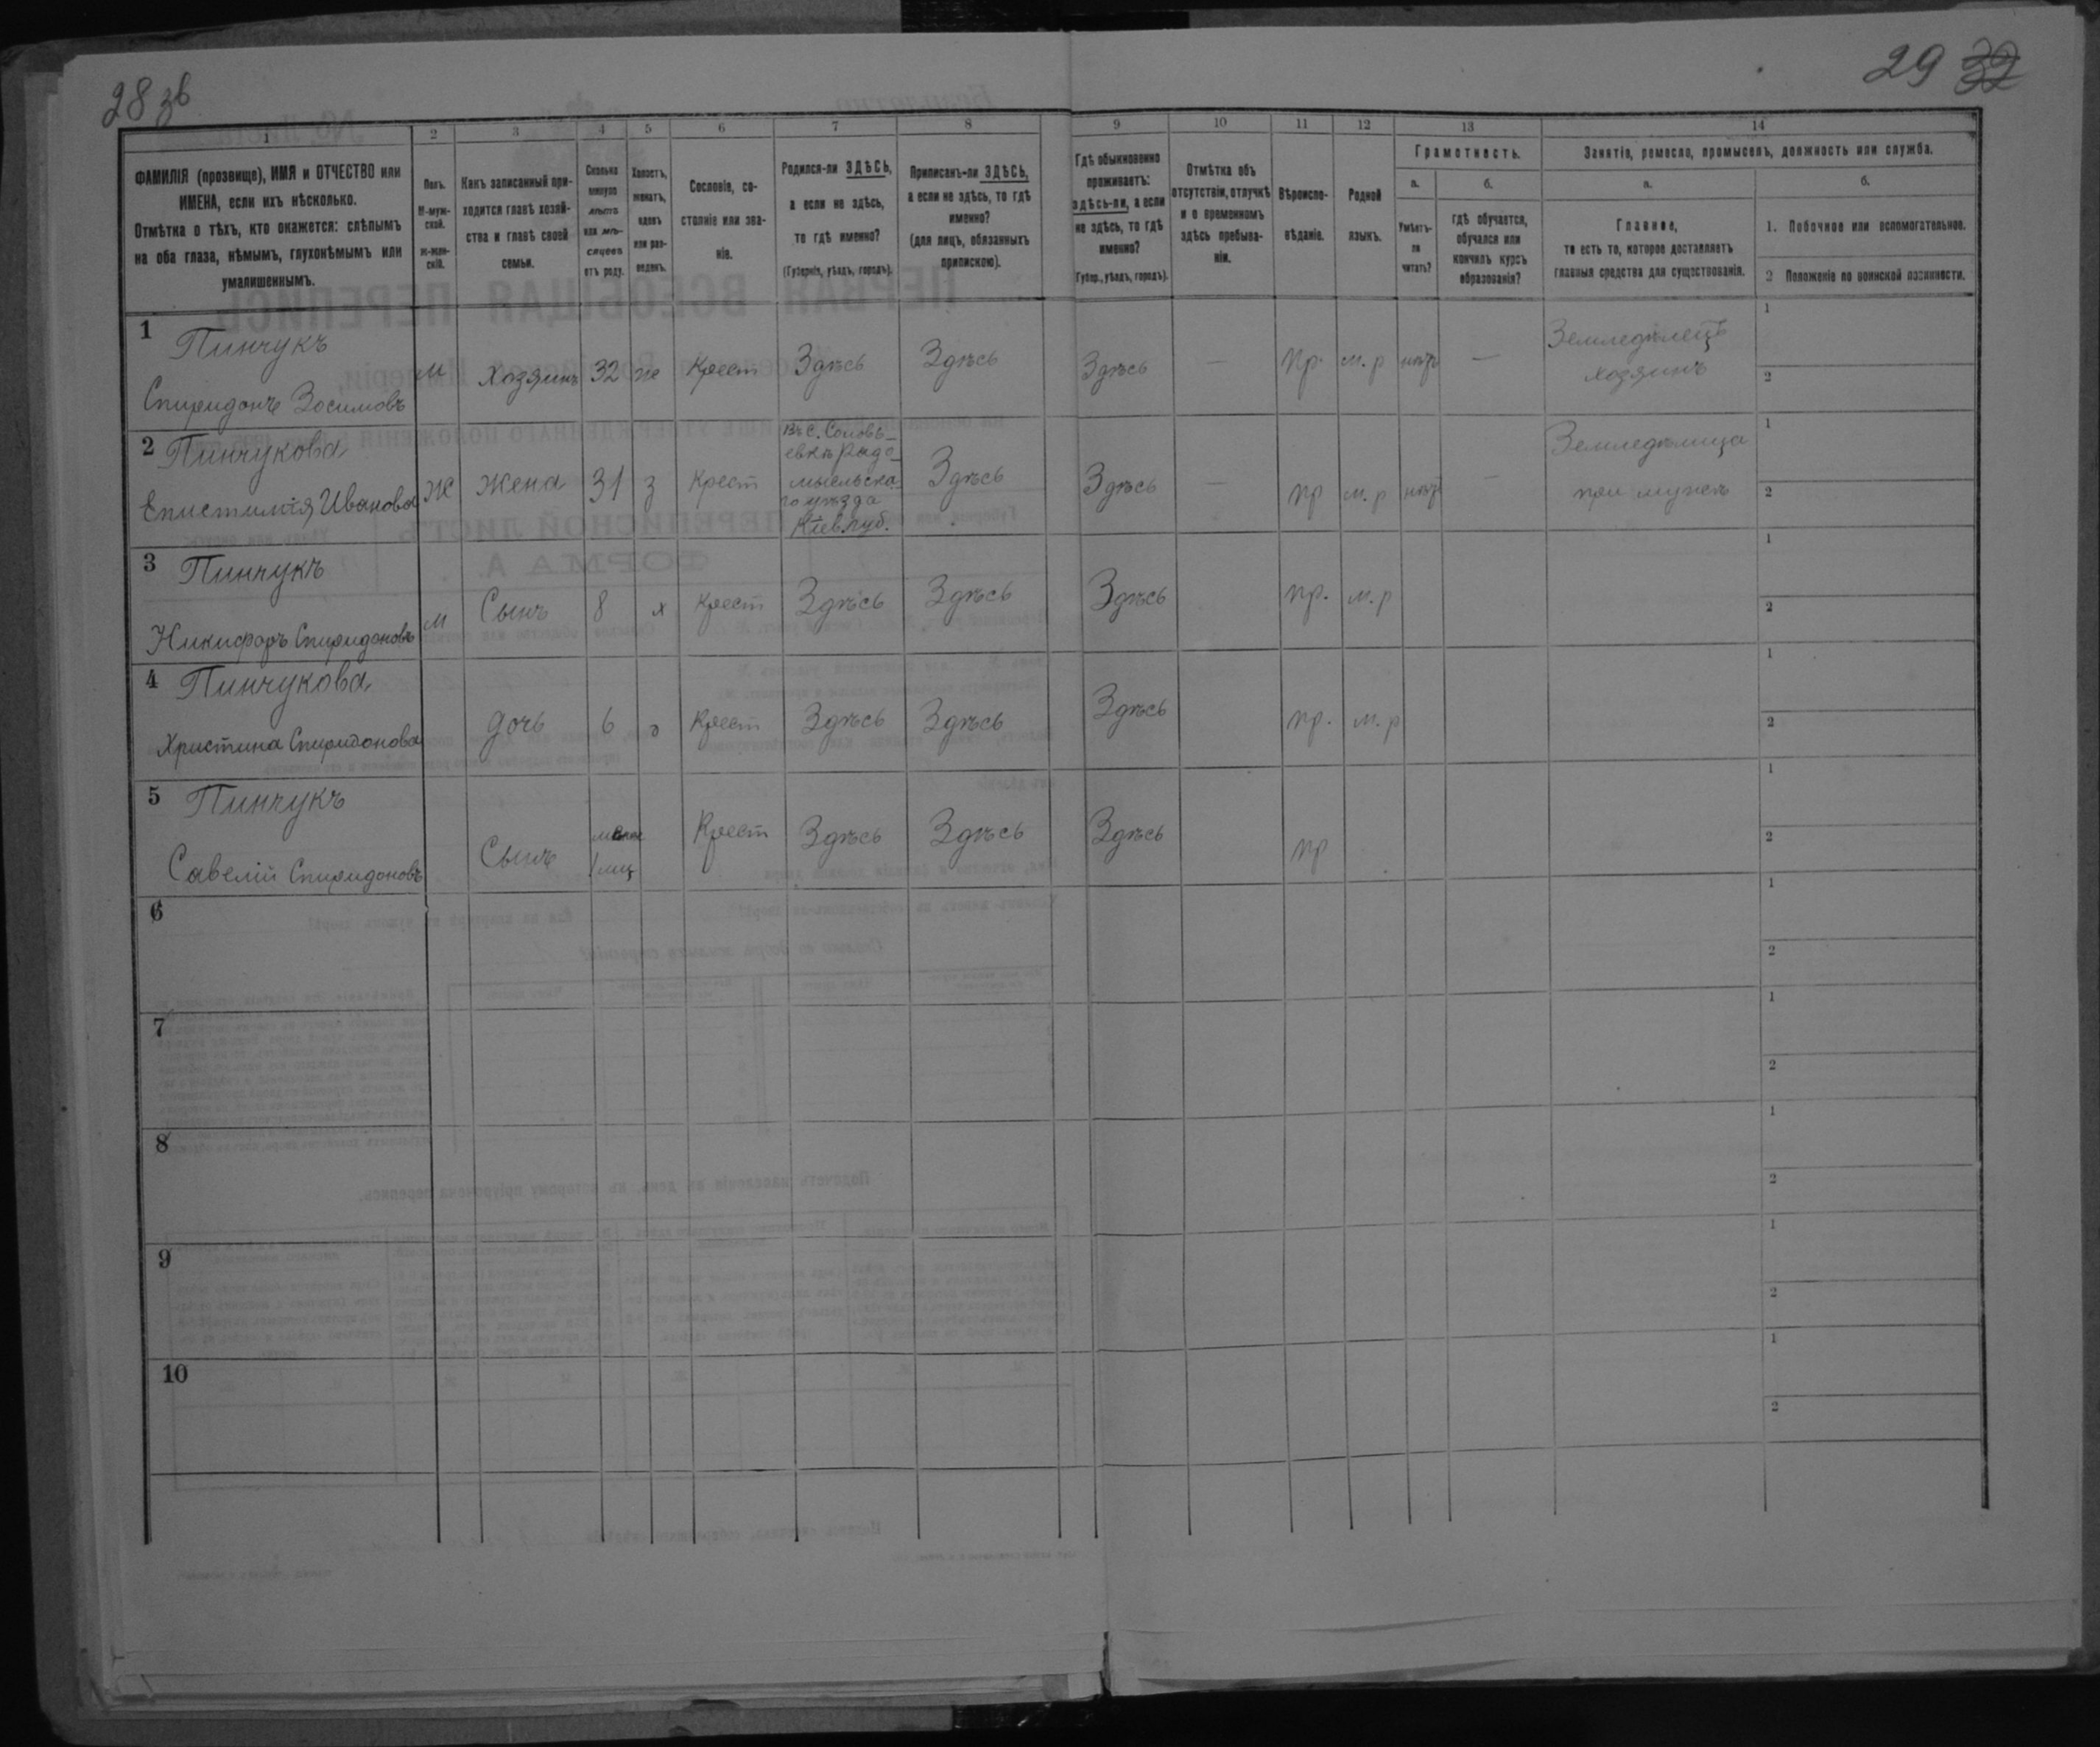 28 зв
29 32
1 2 3 4 5 6 7 8 9 10 11 12 13 14
ФАМИЛІЯ (прозвище), ИМЯ и ОТЧЕСТВО или
ИМЕНА, если ихъ нѣсколько.
Отмѣтка о тѣхъ, кто окажется: слѣпымъ
на оба глаза, нѣмымъ, глухонѣмымъ или
умалишеннымъ.
Полъ.
М-муж-
ской.
Ж-жен-
скій.
Какъ записанный при-
ходится главѣ хозяй-
ства и главѣ своей
семьи.
Сколько
минуло
лѣтъ
или мѣ-
сяцевъ
отъ роду.
Холостъ,
женатъ,
вдовъ
или раз-
веденъ.
Сословіе, со-
стояніе или зва-
ніе.
Родился-ли ЗДѢСЬ,
а если не здѣсь,
то гдѣ именно?
(Губернія, уѣздъ, городъ).
Приписанъ-ли ЗДѢСЬ,
а если не здѣсь, то гдѣ
именно?
(для лицъ, обязанныхъ
припискою).
Гдѣ обыкновенно
проживаетъ:
здѣсь-ли, а если
не здѣсь, то гдѣ
именно?
(Губер., уѣздъ, городъ).
Отмѣтка объ
отсутствіи, отлучкѣ
и о временномъ
здѣсь пребыва-
ніи.
Вѣроиспо-
вѣданіе.
Родной
языкъ.
Грамотность.
а.
Умѣетъ-
ли
читать?
б.
гдѣ обучается,
обучался или
кончилъ курсъ
образованія?
Занятіе, ремесло, промыселъ, должность или служба.
а.
Главное,
то есть то, которое доставляетъ
главныя средства для существованія.
б.
1. Побочное или вспомогательное.
2 Положеніе по воинской повинности.
1 Пинчукъ
Спиридонъ Зосимовъ
М Хозяинъ 32 же Крест Здѣсь Здѣсь Здѣсь — Пр. м. р нѣтъ —
Земледѣлецъ
хозяинъ
1
2
2 Пинчукова
Епистимія Иванова
Ж жена 31 з Крест
Въ с. Соловь-
евкѣ Радо-
мысльска-
го уѣзда
Кіев. губ.
Здѣсь Здѣсь — пр м. р нѣтъ —
Земледѣлица
при мужѣ
1
2
3 Пинчукъ
Никифоръ Спиридоновъ
М Сынъ 8 х Крест Здѣсь Здѣсь Здѣсь пр. м. р
1
2
4 Пинчукова
Христина Спиридонова
дочь 6 Крест Здѣсь Здѣсь Здѣсь пр. м. р
1
2
5 Пинчукъ
Савелій Спиридоновъ
Сынъ
1 мц
Крест Здѣсь Здѣсь Здѣсь пр
1
2
6
1
2
7
1
2
8
1
2
9
1
2
10
1
2